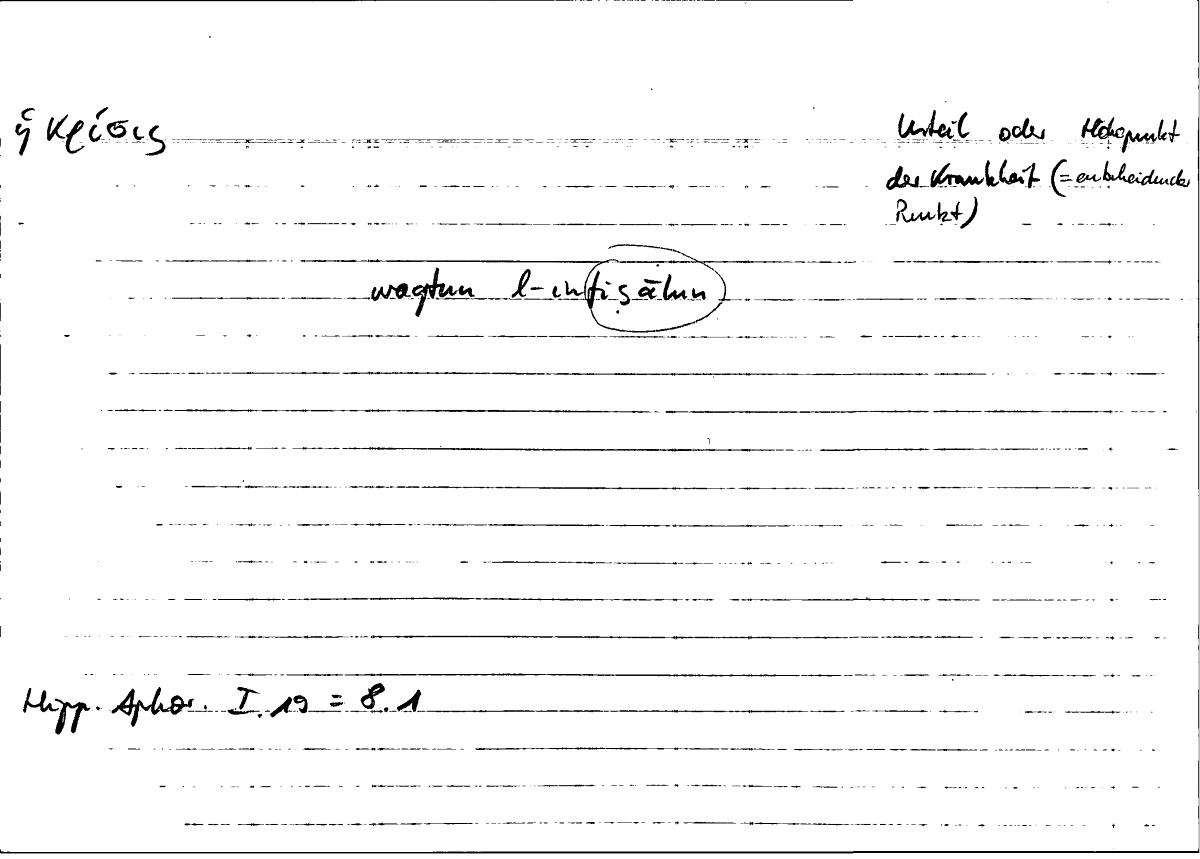 ἡ κρίσις
Urteil oder Höhepunkt
der Krankheit (= entscheidender
Punkt)
waqtun l-infiṣālun
Hipp. Aphor. I.19 = 8.1